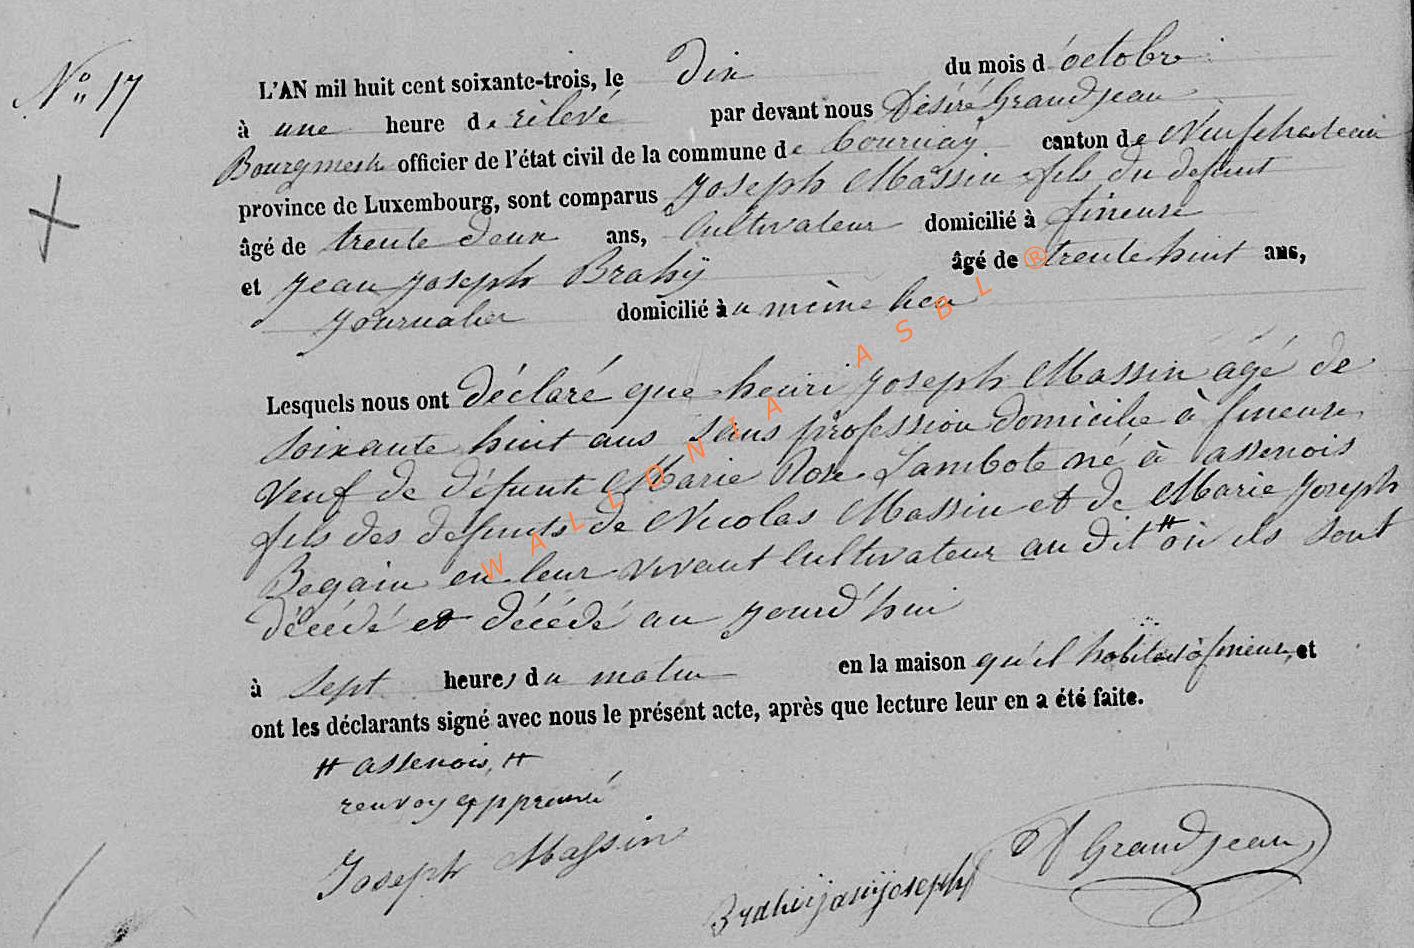 N° 17
L'AN mil huit cent soixante-trois, le Dix du mois d'octobre
à une heure de rélevé par devant nous Désiré Grandjean
Bourgmestre officier de l'état civil de la commune de Tournay canton de Neufchateau
province de Luxembourg, sont comparus Joseph Massin fils du defunt
âgé de trente deux ans, Cultivateur domicilié à fineuse
et Jean Joseph Brahÿ âgé de trente huit ans,
Journalier domicilié au même lieu
Lesquels nous ont déclaré que henri Joseph Massin âgé de
soixante huit ans sans profession domicilie à fineuse
veuf de défunte Marie Rose Lambote né à assenois
fils des defunts de Nicolas Massin et de Marie Joseph
Begain en leur vivant Cultivateur au dit # où ils sont
décédé et décédé au jourd'hui
à sept heures du matin en la maison qu'il habitait à fineuse, et
ont les déclarants signé avec nous le présent acte, après que lecture leur en a été faite.
# assenois, #
renvoy approuvé
Joseph Massin
D Grandjean
Brahÿ jean joseph
WALLONIA ASBL ®